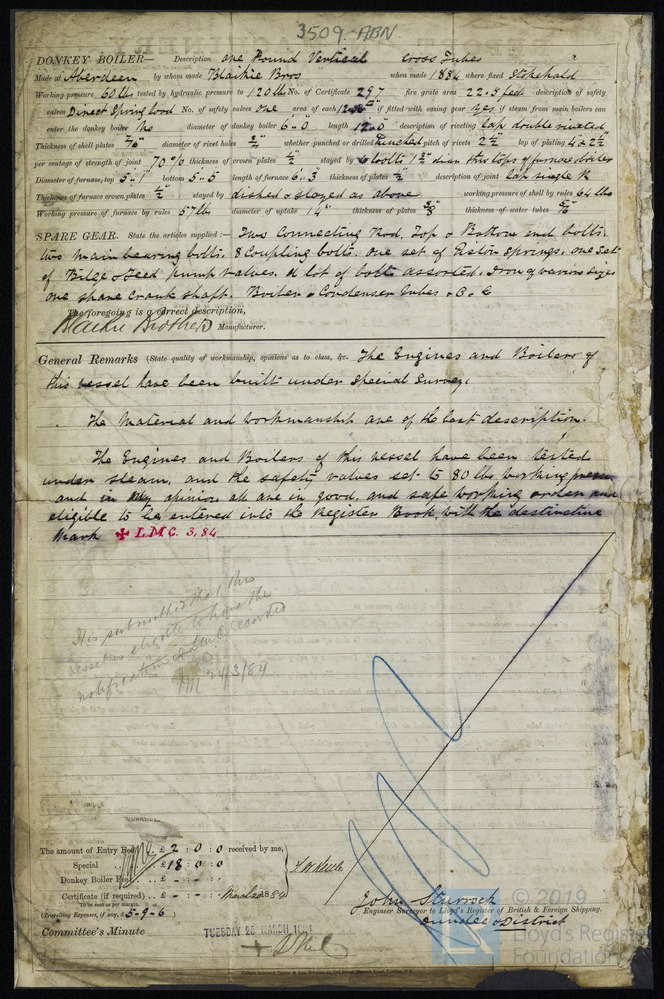 3509. ABN
DONKEY BOILER— Description one Round Vertical Cross Tubes
Made at Aberdeen by whom made Blaikie Bros when made 1884 where fixed Stokehold
Working pressure 60 lb tested by hydraulic pressure to 120 lb No. of Certificate 297 fire grate area 22.5 feet description of safety
valves Direct Spring load No. of safety valves one area of each if fitted with easing gear yes if steam from main boilers can
enter the donkey boiler No diameter of donkey boiler 6-0 length 12-0 description of riveting lap double riveted
Thickness of shell plates 7/16 diameter of rivet holes 3/4 whether punched or drilled Punched pitch of rivets 2 1/2 lap of plating 4 & 2 1/2
per centage of strength of joint 70% thickness of crown plates 1/2 stayed by 6 bolts 1 1/2 diam thro tops of furnace
Diameter of furnace, top 5-1 bottom 5-5 length of furnace 6-3 thickness of plates 1/2 description of joint lap single R
Thickness of furnace crown plates 1/2 stayed by dished & stayed as above working pressure of shell by rules 64 lb
Working pressure of furnace by rules 57 lb diameter of uptake 14" thickness of plates 3/8 thickness of water tubes
SPARE GEAR. State the articles supplied:— Two Connecting Rod, Top & Bottom end bolts,
two main bearing bolts. 8 Coupling bolts. one set of Piston Springs, one set
of Bilge & Feed pump valves. A lot of bolts assorted. Iron of various sizes
one spare crank shaft. Boiler & Condenser tubes &c. &c
The foregoing is a correct description,
Blaikie Brothers Manufacturer.
General Remarks (State quality of workmanship, opinions as to class, &c. The Engines and Boilers of
this vessel have been built under Special Survey.
The Material and workmanship are of the best description.
The Engines and Boilers of this vessel have been tested
under steam, and the safety valves set to 80 lbs working pressure
and in my opinion all are in good, and safe working order and
eligible to be entered into the Register Book with the destinctive
Mark ✠ L.M.C. 3.84
It is submitted that this
vessel is eligible to have the
notification recorded
24/3/84
The amount of Entry Fee .. £ 2 : 0 : 0 received by me,
Special .. £ 18 : 0 : 0
Donkey Boiler Fee .. £ - : - : -
Certificate (if required) .. £ - : - : - March 1884
To be sent as per margin.
(Travelling Expenses, if any, £ 5-9-6)
John Sturrock
Engineer Surveyor to Lloyd's Register of British & Foreign Shipping.
Dundee & District
Committee's Minute TUESDAY 25 MARCH 1884
© 2019
Lloyd's Register
Foundation